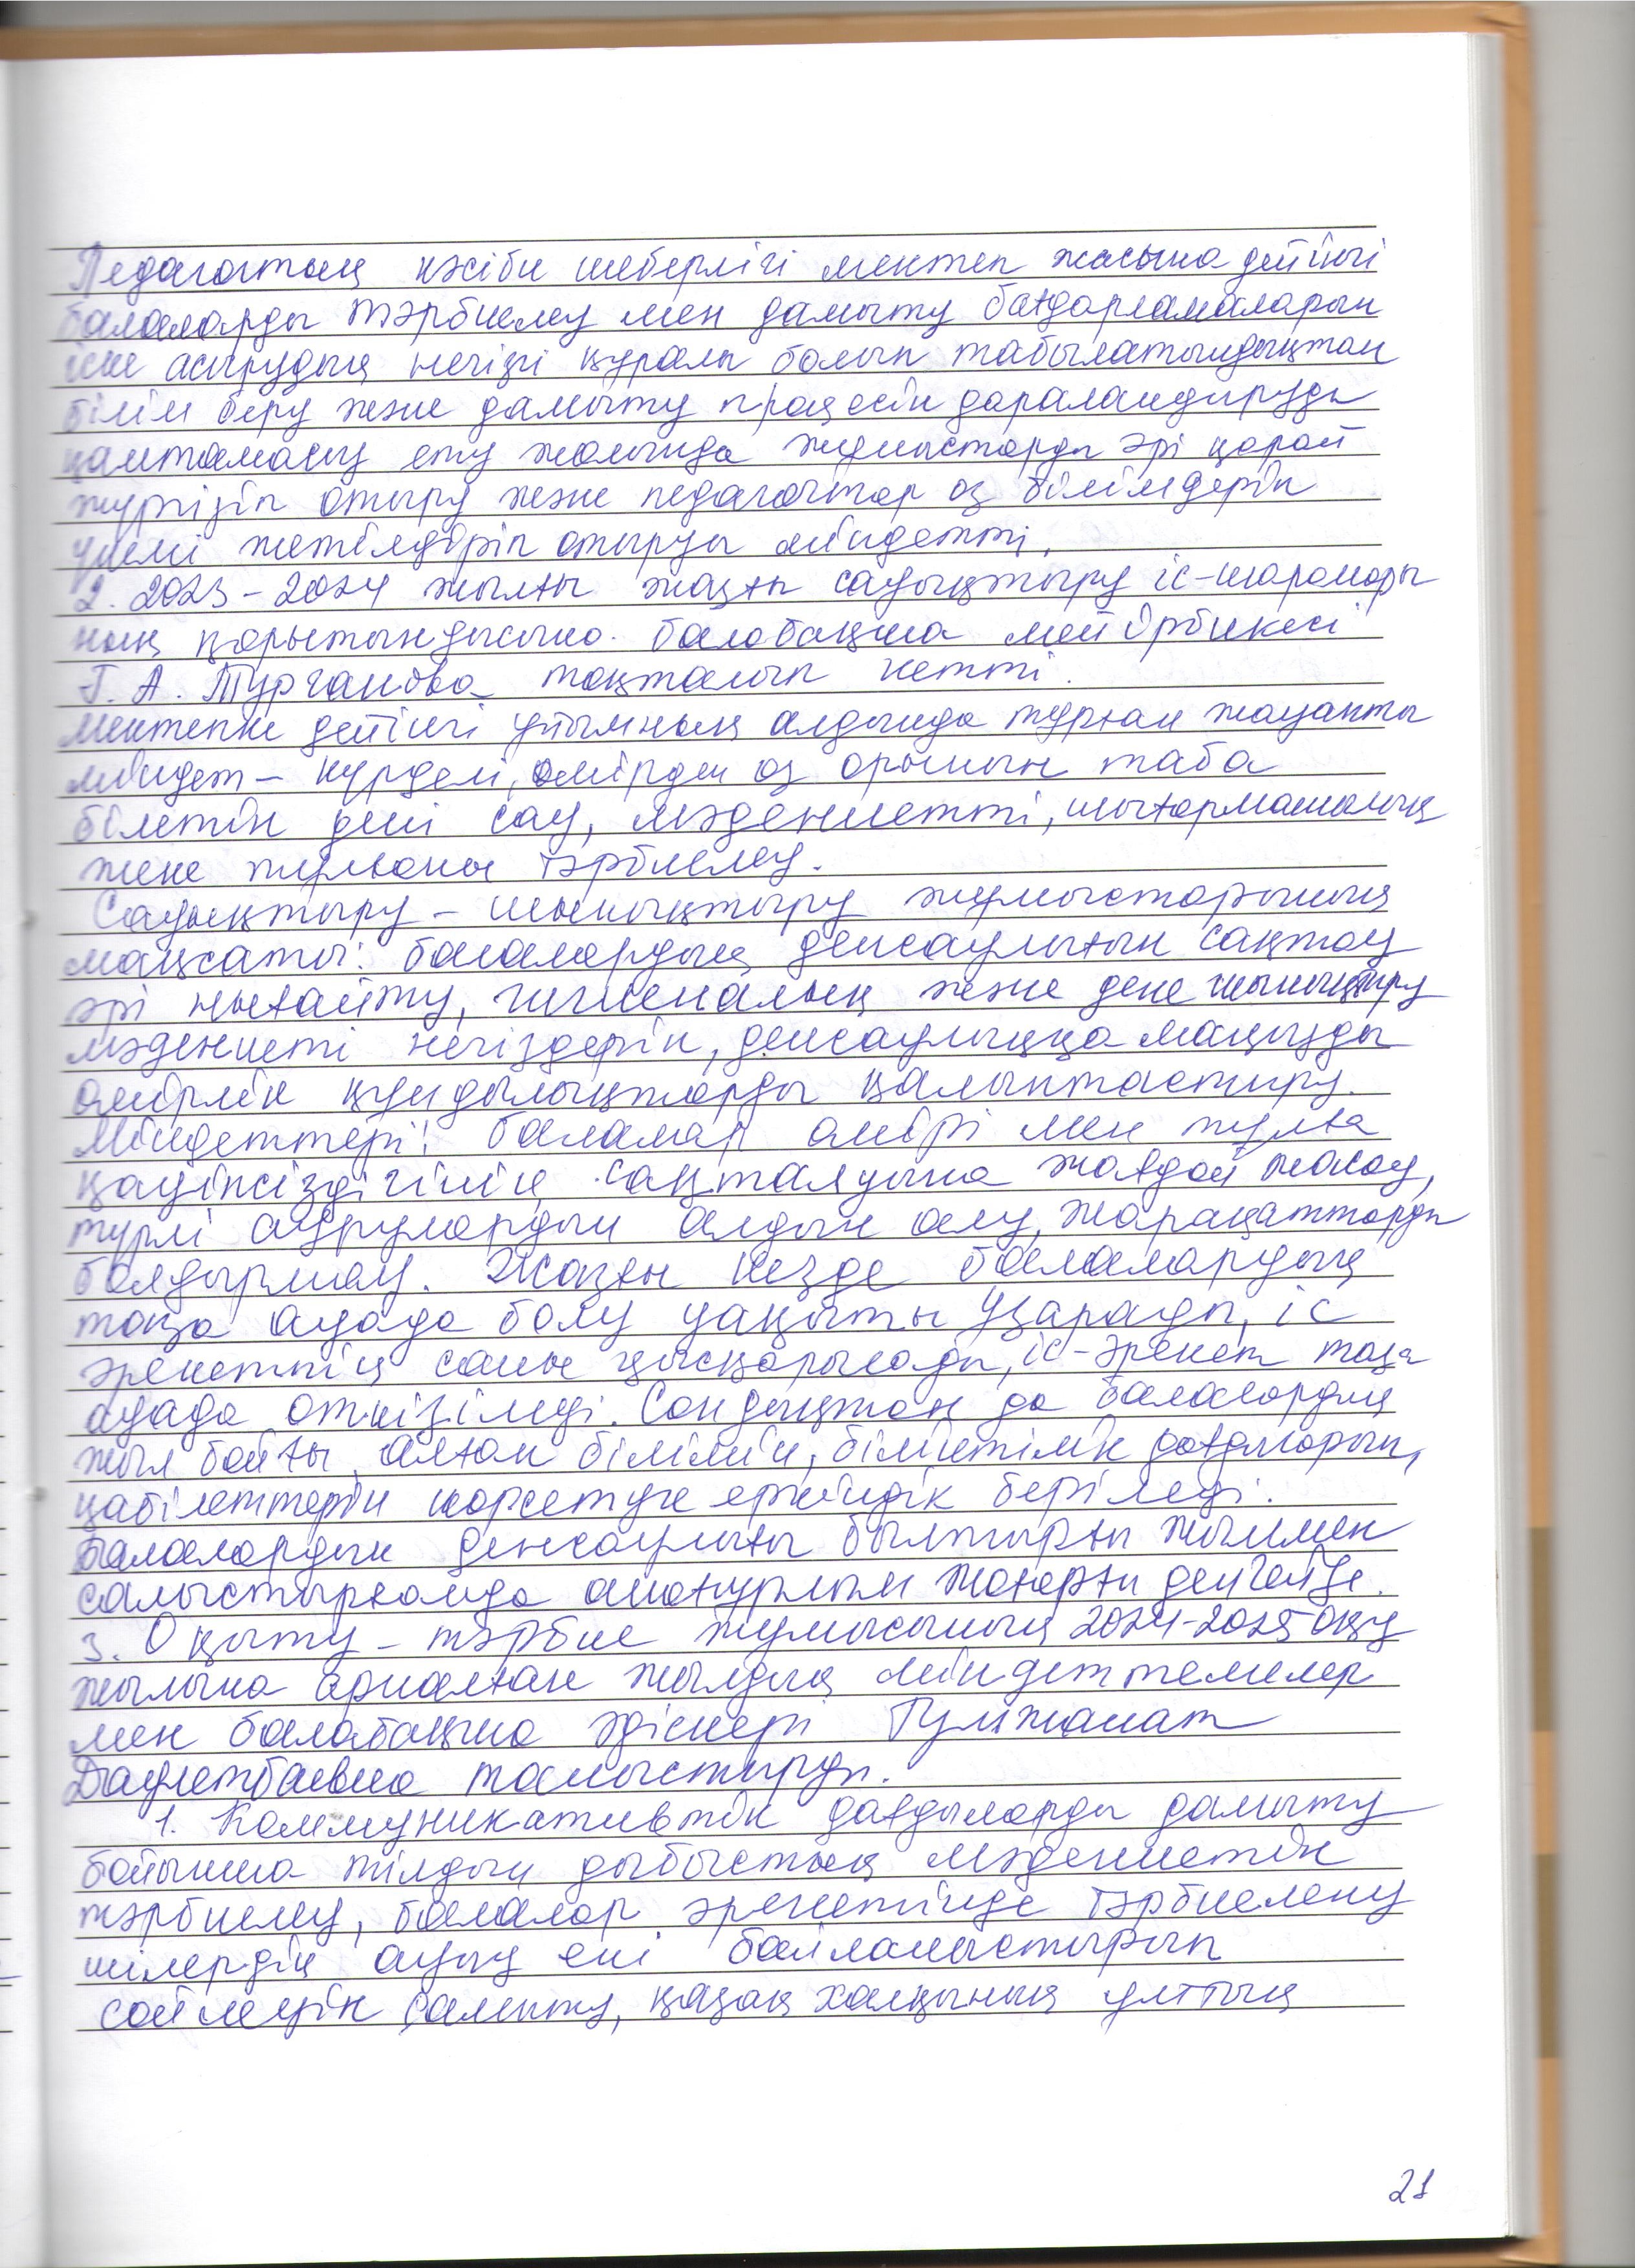 Педагогтың кәсіби шеберлігі мектеп жасына дейінгі
балаларды тәрбиелеу мен дамыту бағдарламаларын
іске асырудың негізгі құралы болып табылатындықтан
білім беру және дамыту процесін дараландыруды
қамтамасыз ету жолында жұмыстарды әрі қарай
жүргізіп отыру және педагогтар өз білімдерін
үнемі жетілдіріп отыруы міндетті.
2. 2023-2024 жылғы жазғы сауықтыру іс-шаралары
ның қорытындысына балабақша мейірбикесі
Г. А. Турганова тоқталып кетті.
Мектепке дейінгі ұйымның алдында тұрған жауапты
міндет - күрделі, өмірден өз орынын таба
білетін дені сау, мәдениетті, шығармашылық
жеке тұлғаны тәрбиелеу.
Сауықтыру - шынықтыру жұмыстарының
мақсаты: балалардың денсаулығын сақтау
әрі нығайту, гигиеналық және дене шынықтыру
мәдениеті негіздерін, денсаулыққа маңызды
өмірлік құндылықтарды қалыптастыру.
Міндеттері: балалар өмірі мен тұлға
қауіпсіздігінің сақталуына жағдай жасау,
түрлі аурулардың алдын алу, жарақаттарды
болдырмау. Жазғы кезде балалардың
таза ауада болу уақыты ұзарады, іс
әрекеттің саны қысқарылады, іс-әрекет таза
ауада өткізіледі. Сондықтан да балалардың
жыл бойғы алған білімін, біліктілік дағдыларын,
қабілеттерін көрсетуге еркіндік беріледі.
Балалардың денсаулығы былтырғы жылмен
салыстырғанда анағұрлым жоғарғы деңгейде.
3. Оқыту - тәрбие жұмысының 2024-2025 оқу
жылына арналған жылдық міндеттемелер
мен балабақша әдіскері Гулжанат
Даулетбаевна таныстырды.
1. Коммуникативтік дағдыларды дамыту
бойынша тілдың дыбыстық мәдениетін
тәрбиелеу, балалар әрекетінде тәрбиелену
шілердің ауыз екі байланыстырып
сөйлеуін дамыту, қазақ халқының ұлттық
21